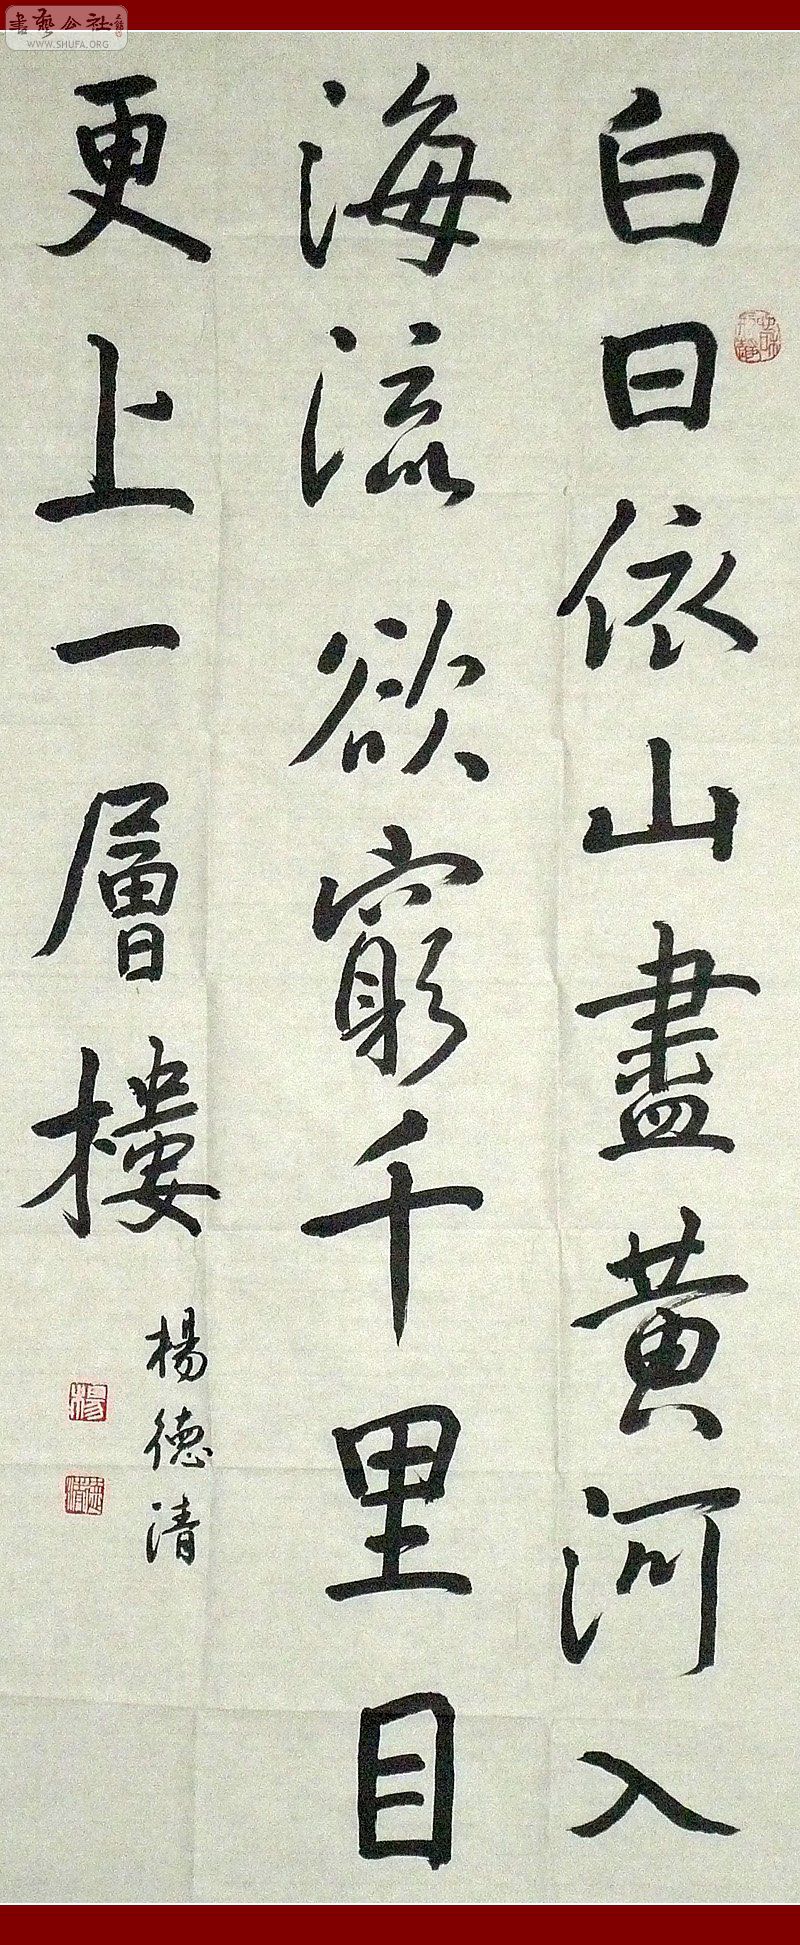 白日依山盡黄河入
海流欲窮千里目
更上一層樓
楊德清
楊
德清
書藝公社
WWW.SHUFA.ORG